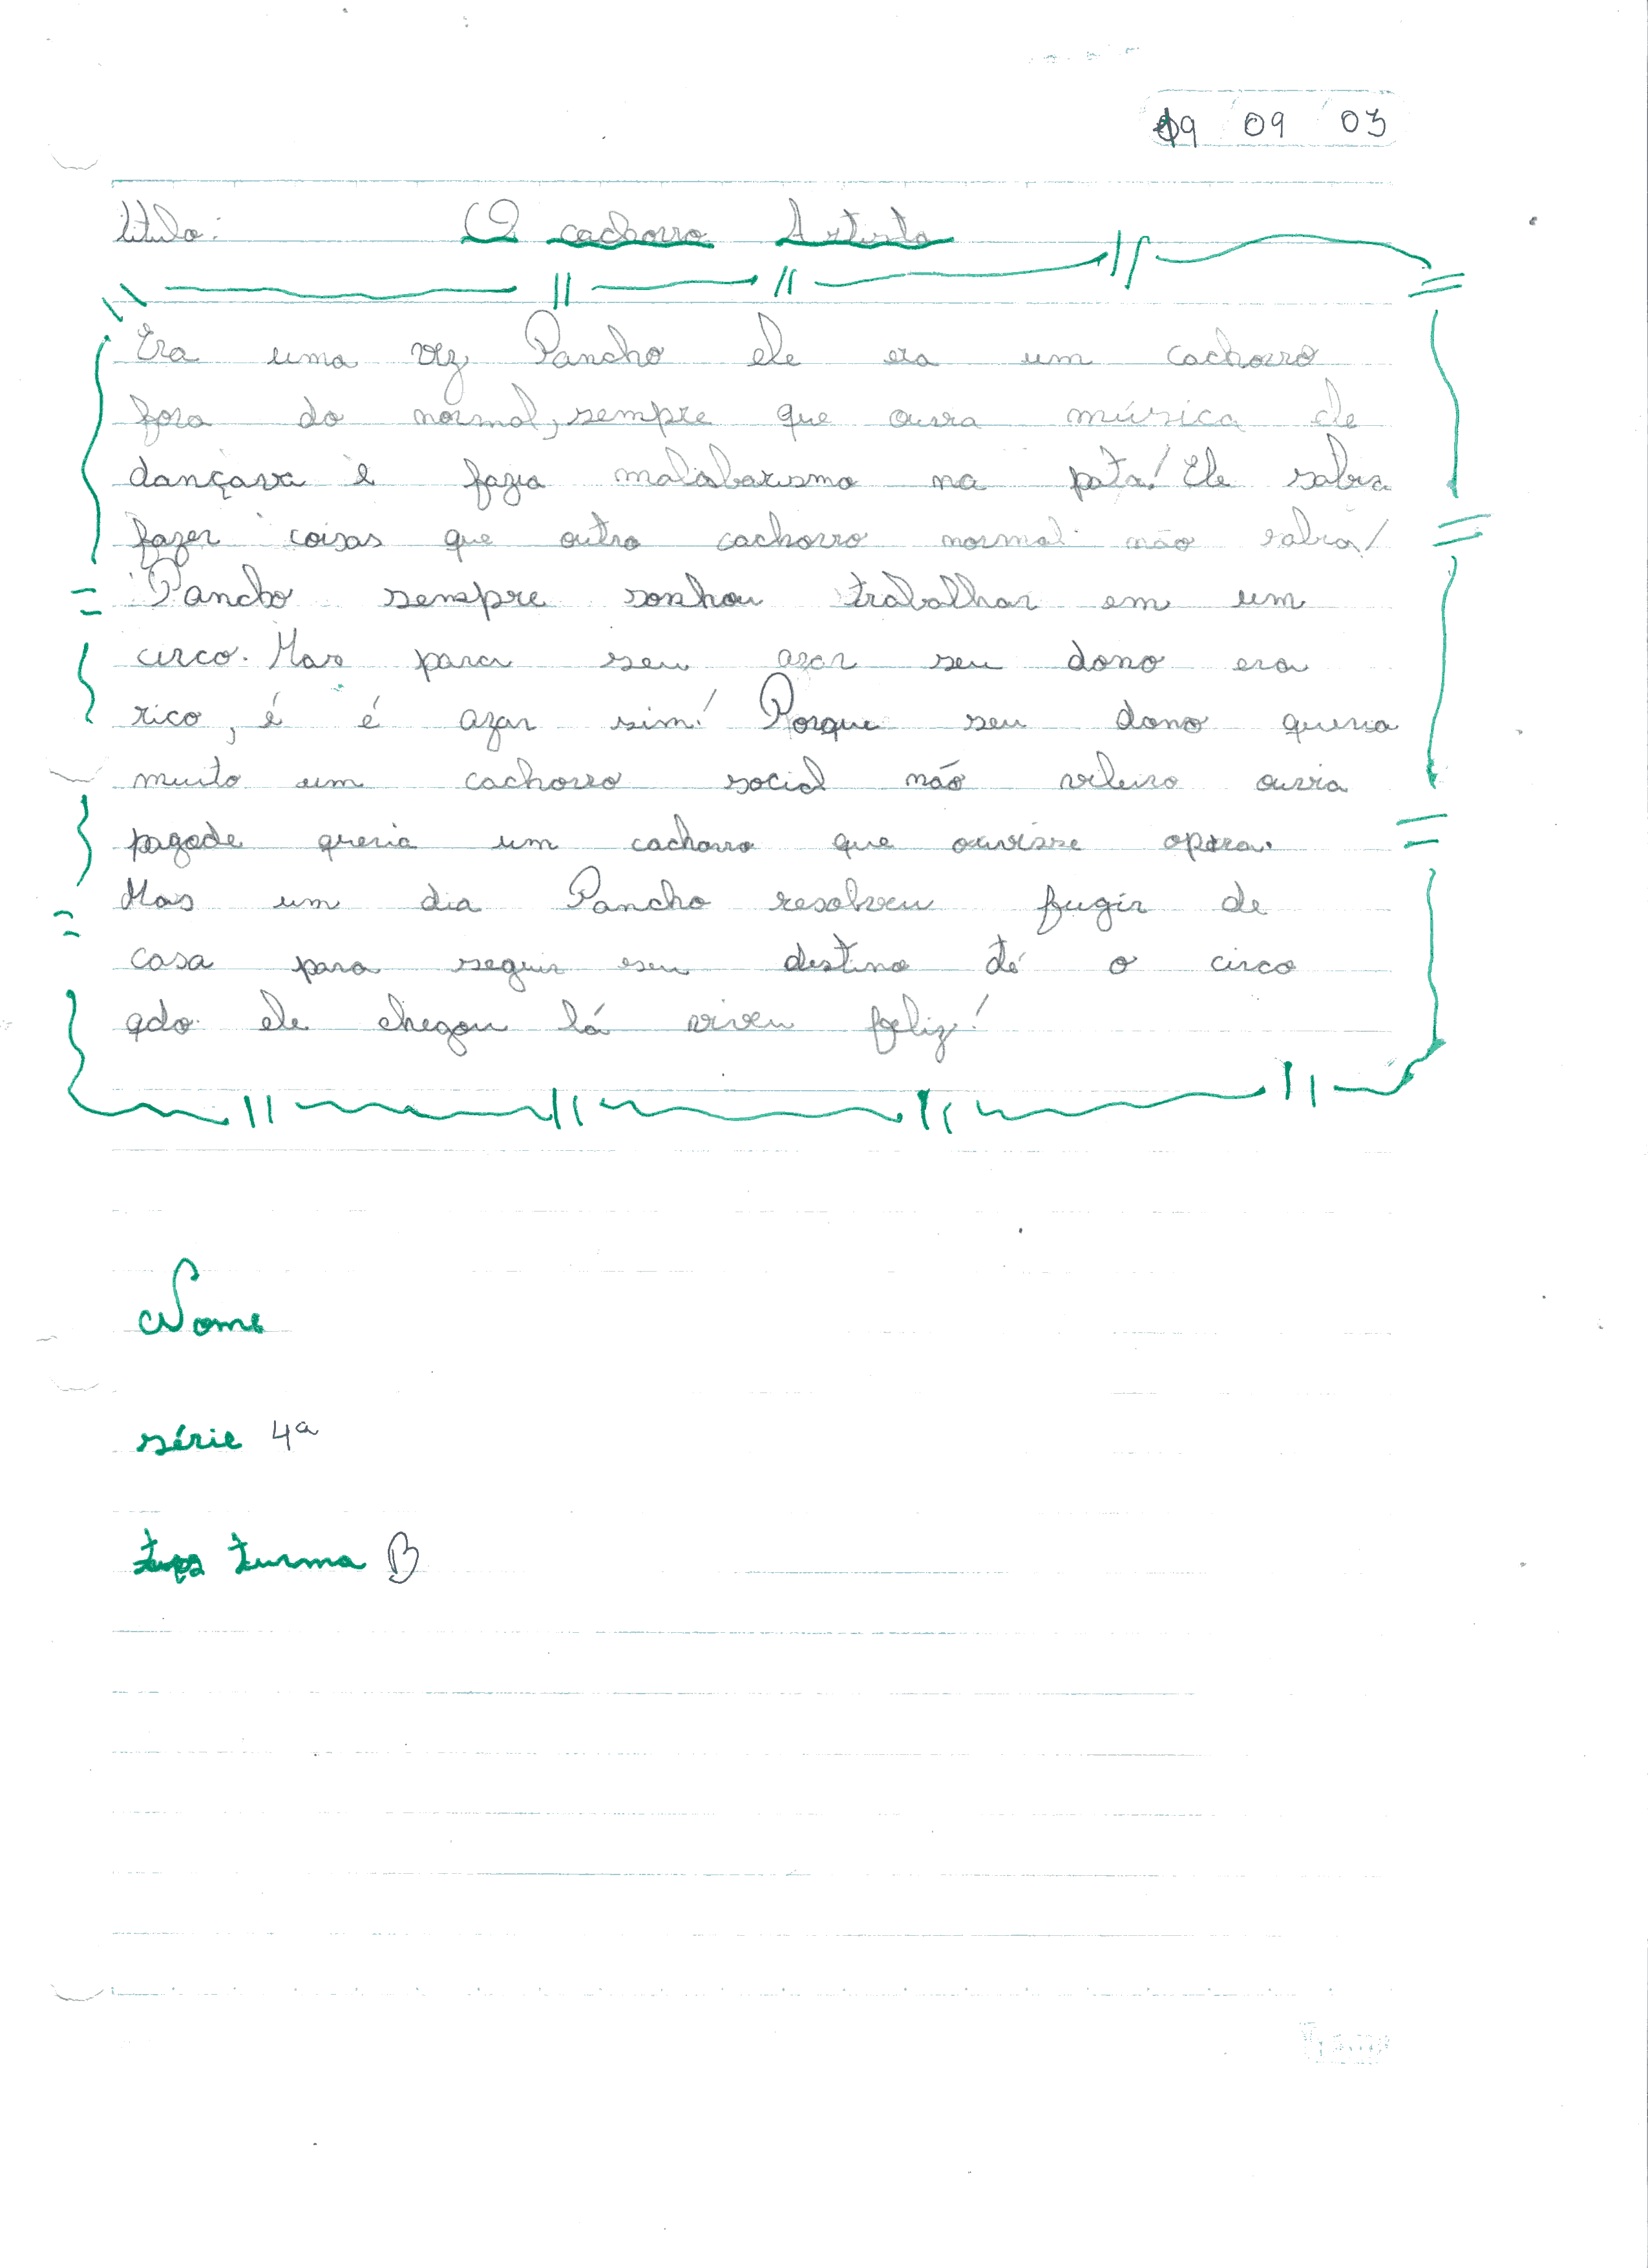 09 09 03
titulo: O cachorro Artista
Era uma vez Pancho ele era um cachorro
fora do normal, sempre que ouvia música ele
dançava e fazia malabarismo na pata! Ele sabia
fazer coisas que outro cachorro normal não sabia!
Pancho sempre sonhou trabalhar em um
circo. Mas para seu azar seu dono era
rico, é é azar sim! Porque seu dono queria
muito um cachorro social não vileiro ouvia
pagode queria um cachorro que ouvisse opera.
Mas um dia Pancho resolveu fugir de
casa para seguir seu destino té o circo
qdo ele chegou lá viveu feliz!
Nome
série 4ª
turma B